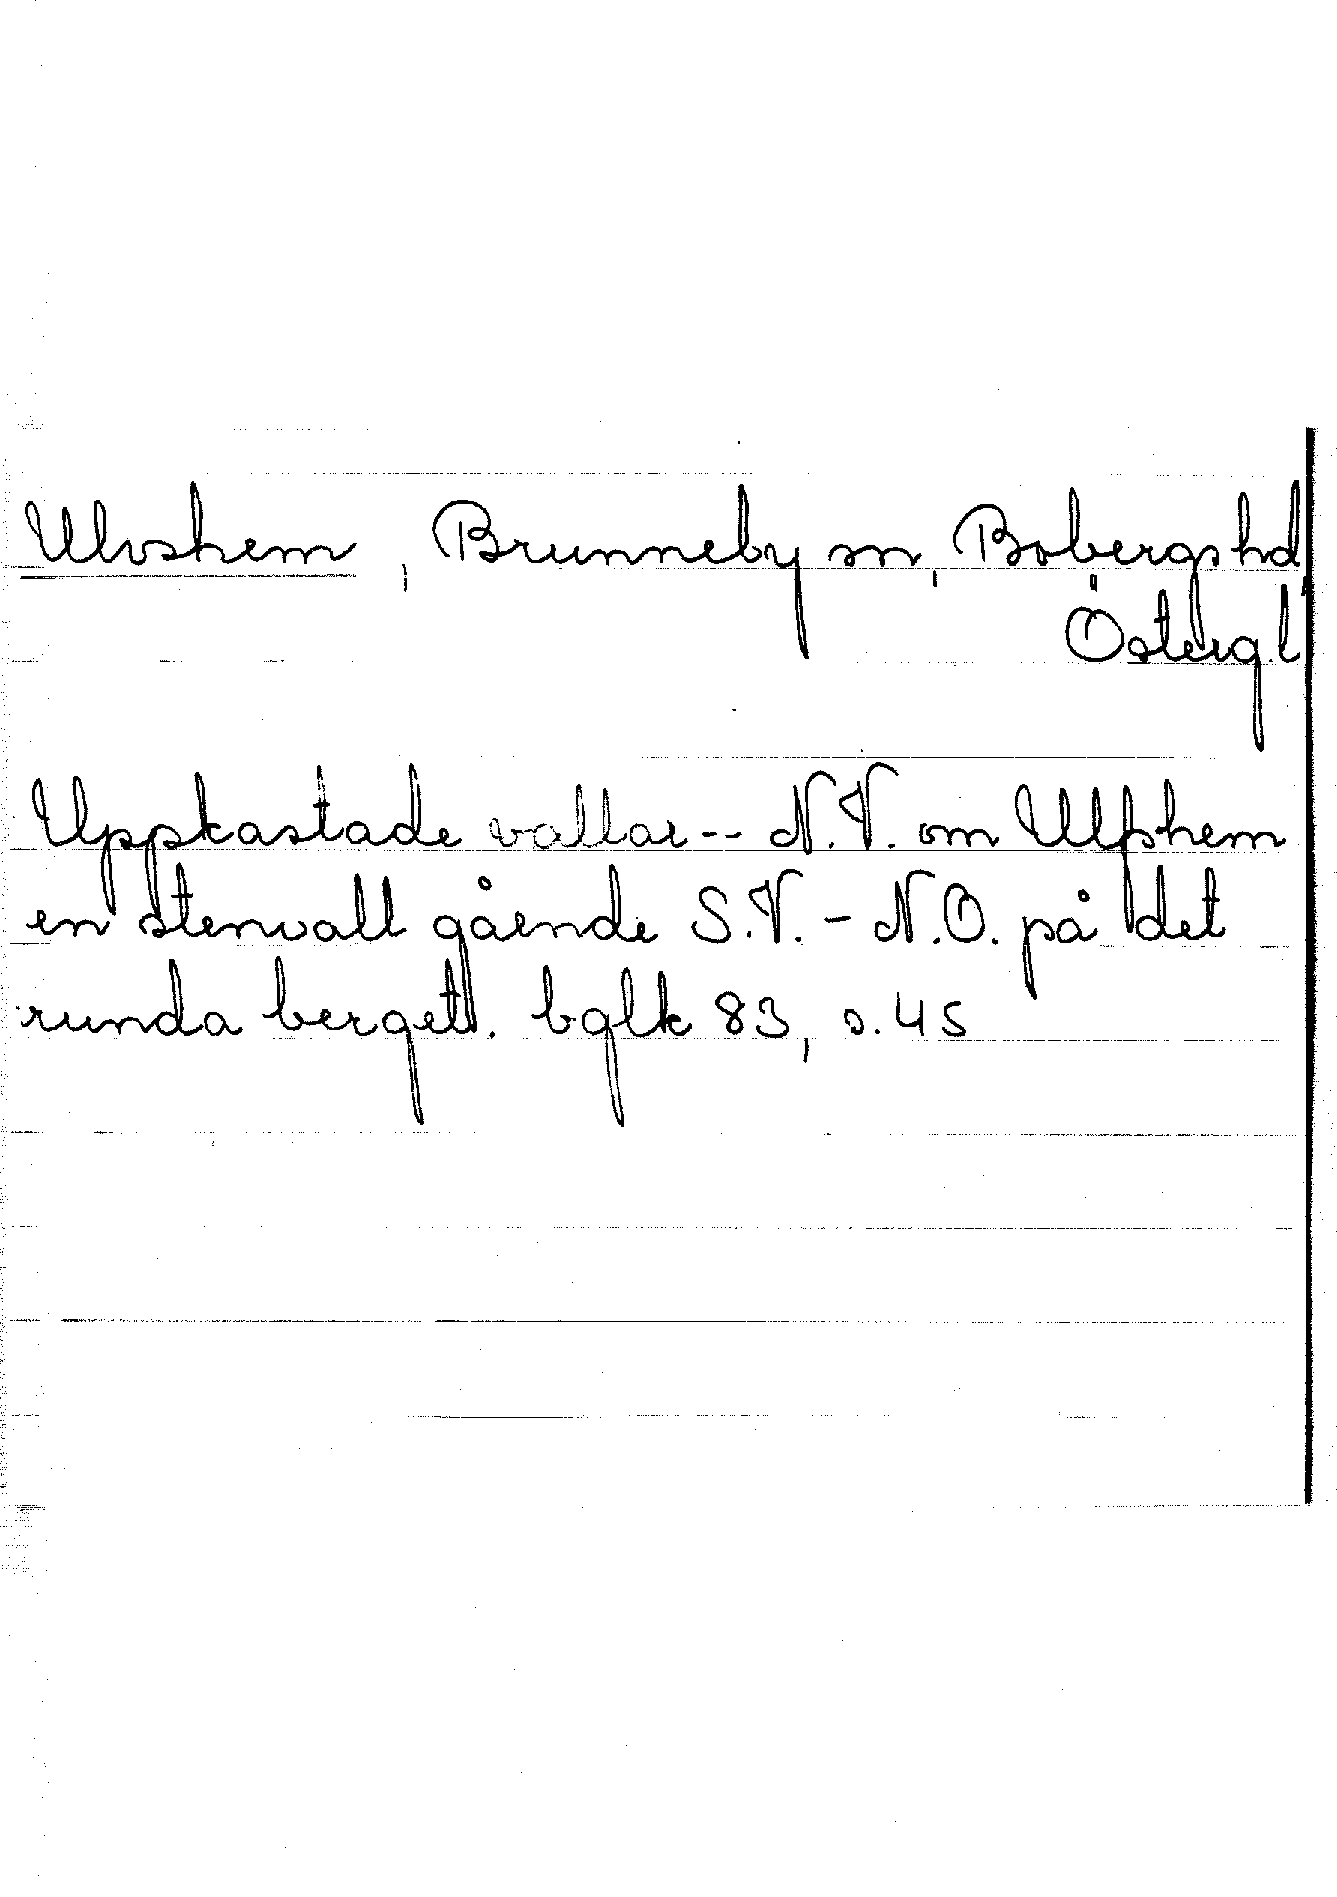 Ulvshem, Brunneby sn, Bobergs hd,
Östergl
Uppkastade vallar -- N.V. om Ulfshem
en stenvall gående S.V. - N.O. på det
runda berget. bglk 83, s. 45